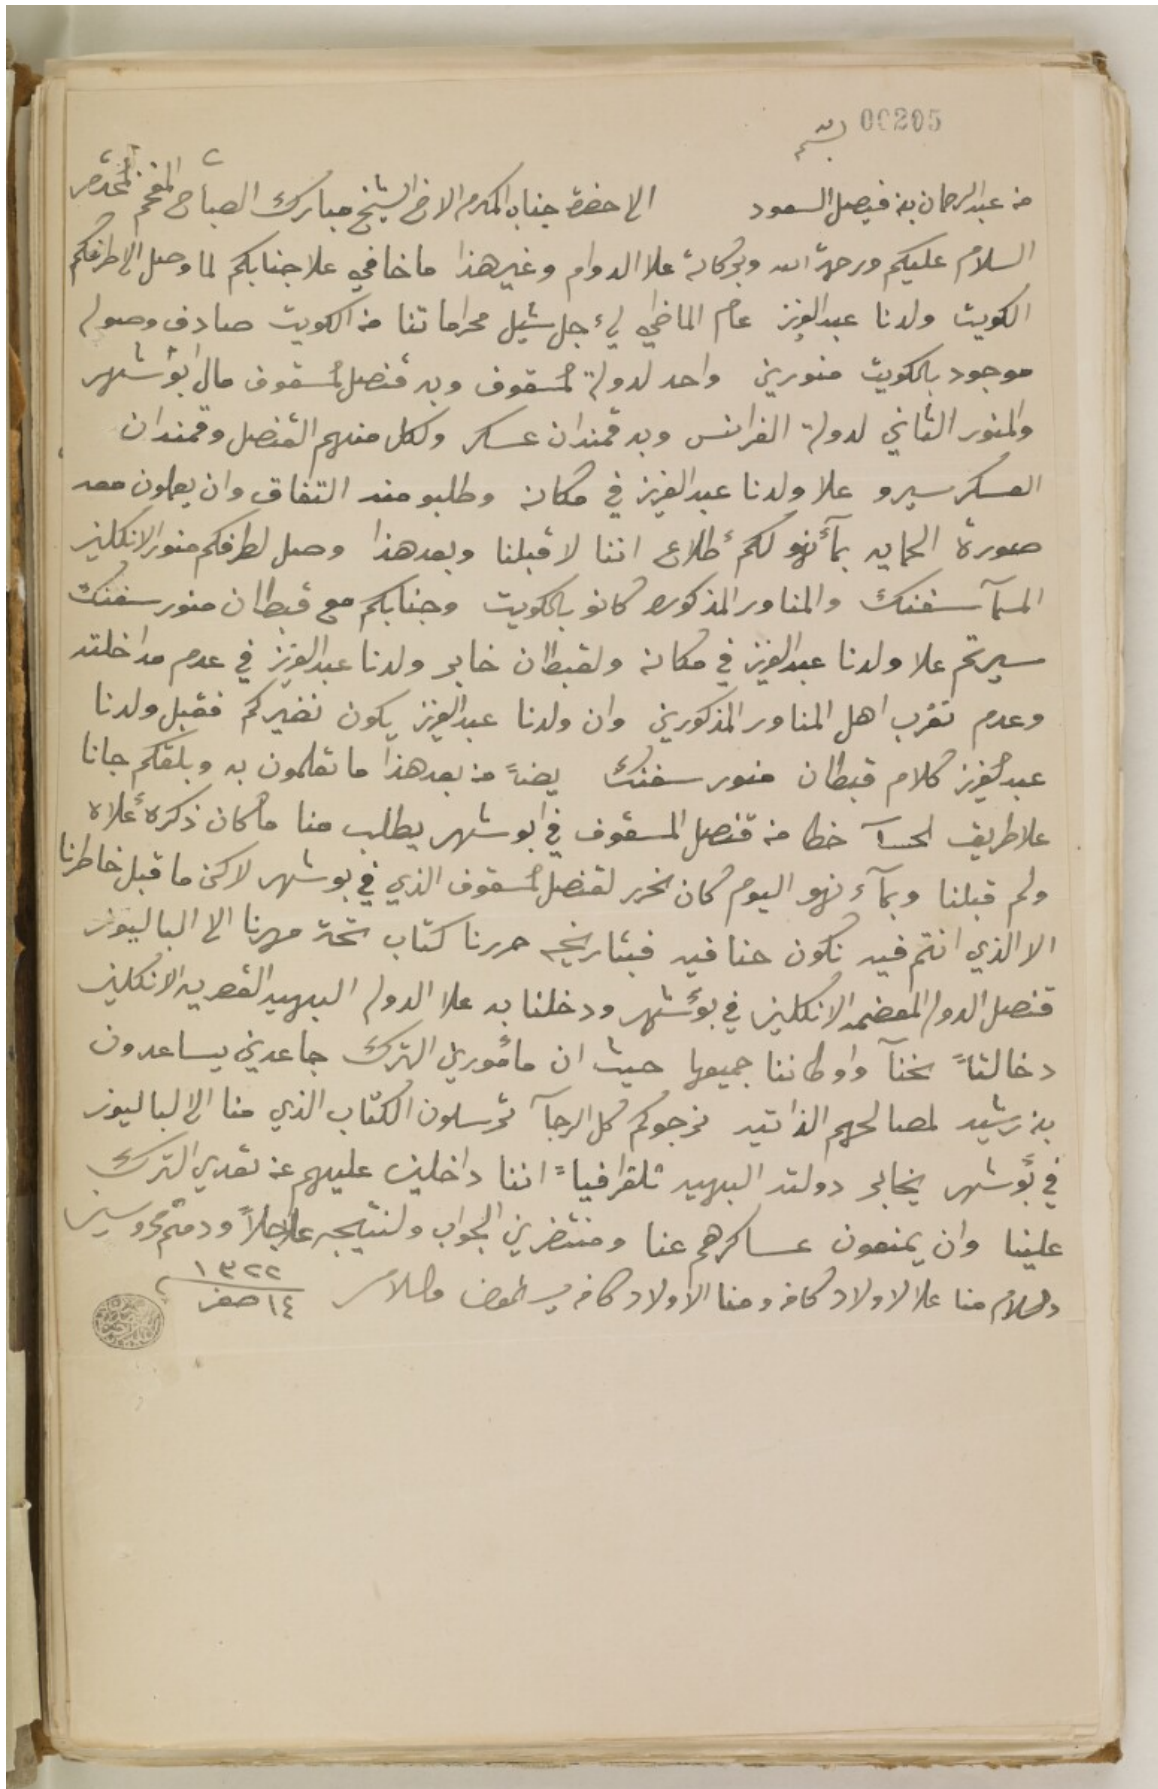 00205
بسمه
من عبدالرحمان بن فيصل السعود الا حضرة جناب المكرم الاخ الشيخ مبارك الصباح المفخم المحترم
السلام عليكم ورحمة الله وبركاته علا الدوام وغير هذا ما خافي علا جنابكم لما وصل الا طرفكم
الكويت ولدنا عبدالعزيز عام الماضي لئجل شيل محراماتنا من الكويت صادف وصوله
موجود بالكويت منورين واحد لدولة المسقوف وبه قنصل المسقوف مال ابوشهر
والمنور الثاني لدولة الفرانس وبه قمندان عسكر ولكل منهم القنصل وقمندان
العسكر سيرو علا ولدنا عبدالعزيز في مكانه وطلبو منه التفاق وان يعملون معه
صورة الحمايه بمآنهو لكم أطلاع اننا لا قبلنا وبعد هذا وصل لطرفكم منور الانكليز
المسمآ سفنك والمناور المذكوره كانو بالكويت وجنابكم مع قبطان منور سفنك
سيرتم علا ولدنا عبدالعزيز في مكانه ولقبطان خابر ولدنا عبدالعزيز في عدم مداخلته
وعدم تقرب اهل المناور المذكورين وان ولدنا عبدالعزيز يكون نضيركم فقبل ولدنا
عبدالعزيز كلام قبطان منور سفنك يضاً من بعد هذا ما تعلمون به وبلغكم جانا
علا طريق الحسآ خطا من قنصل المسقوف في ابوشهر يطلب منا ما كان ذكره أعلاه
ولم قبلنا وبمآءنهو اليوم كان نحرر لقنصل المسقوف الذي في بوشهر لاكن ما قبل خاطرنا
الا الذي انتم فيه نكون حنا فيه فبتاريخه حررنا كتاب تحت مهرنا الا الباليوز
قنصل الدوله المعضمه الانكليز في بوشهر ودخلنا به علا الدوله البهيه القصريه الانكليز
دخالتاً نحنآ واوطاننا جميعها حيث ان مامورين الترك جاعدين يساعدون
بن رشيد لمصالحهم الذاتيه نرجوكم كل الرجآ ترسلون الكتاب الذي منا الا الباليوز
في بوشهر يخابر دولته البهيه تلقرافياً اننا داخلين عليهم عن تعدي الترك
علينا وان يمنعون عساكرهم عنا ومنتضرين الجواب ولنتيجه علاجلاً ودمتم محروسين
والسلام منا علا الاولاد كافه ومنا الاولاد كافه والسلام
١٤ صفر ١٣٢٢